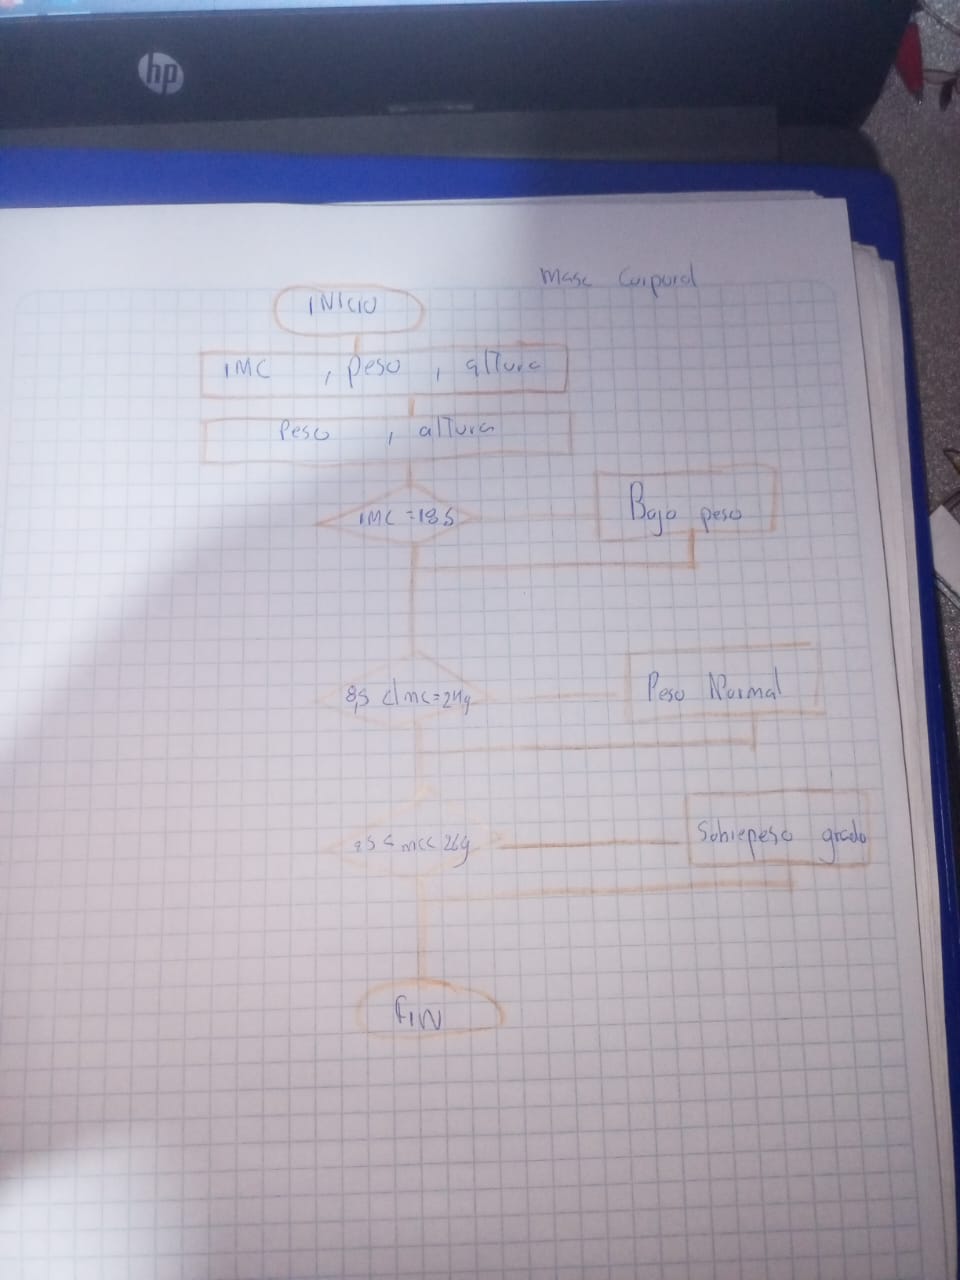 hp
Masc Corporal
INICIO
IMC , peso , altura
Peso , altura
IMC = 18,5
Bajo peso
8,5 < Imc = 24g
Peso Normal
Sobrepeso grado
FIN